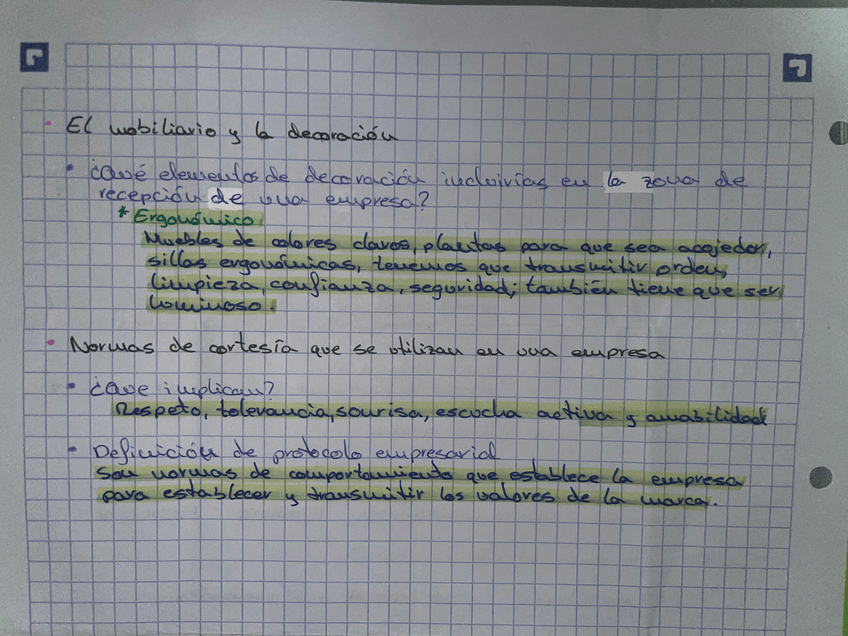 El mobiliario y la decoración
¿Qué elementos de decoración incluirías en la zona de
recepción de una empresa?
* Ergonómico
Muebles de colores claros, plantas para que sea acojedor,
sillas ergonómicas, tenemos que transmitir orden,
limpieza, confianza, seguridad; también tiene que ser
luminoso.
Normas de cortesía que se utilizan en una empresa
¿Que implican?
Respeto, tolerancia, sonrisa, escucha activa y amabilidad
Definición de protocolo empresarial
Son normas de comportamiento que establece la empresa
para establecer y transmitir los valores de la marca.